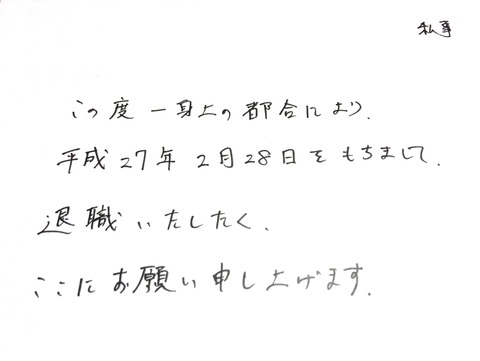 私事
この度一身上の都合により、
平成27年2月28日をもちまして、
退職いたしたく、
ここにお願い申し上げます。